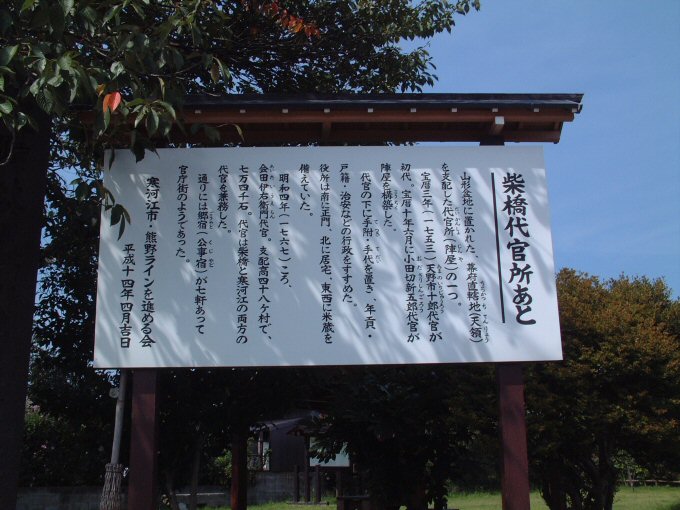 柴橋代官所あと
山形盆地に置かれた、幕府直轄地（天領）
を支配した代官所（陣屋）の一つ。
宝暦三年（一七五三）天野市十郎代官が
初代。宝暦十年六月に小田切新五郎代官が
陣屋を構築した。
代官の下に手附・手代を置き、年貢・
戸籍・治安などの行政をすすめた。
役所は南に正門、北に居宅、東西に米蔵を
備えていた。
明和四年（一七六七）ころ、
会田伊右衛門代官。支配高四十八ヶ村で、
七万四千石。代官は柴橋と寒河江の両方の
代官を兼務した。
通りには郷宿（公事宿）が七軒あって
官庁街のようであった。
寒河江市・熊野ラインを進める会
平成十四年四月吉日